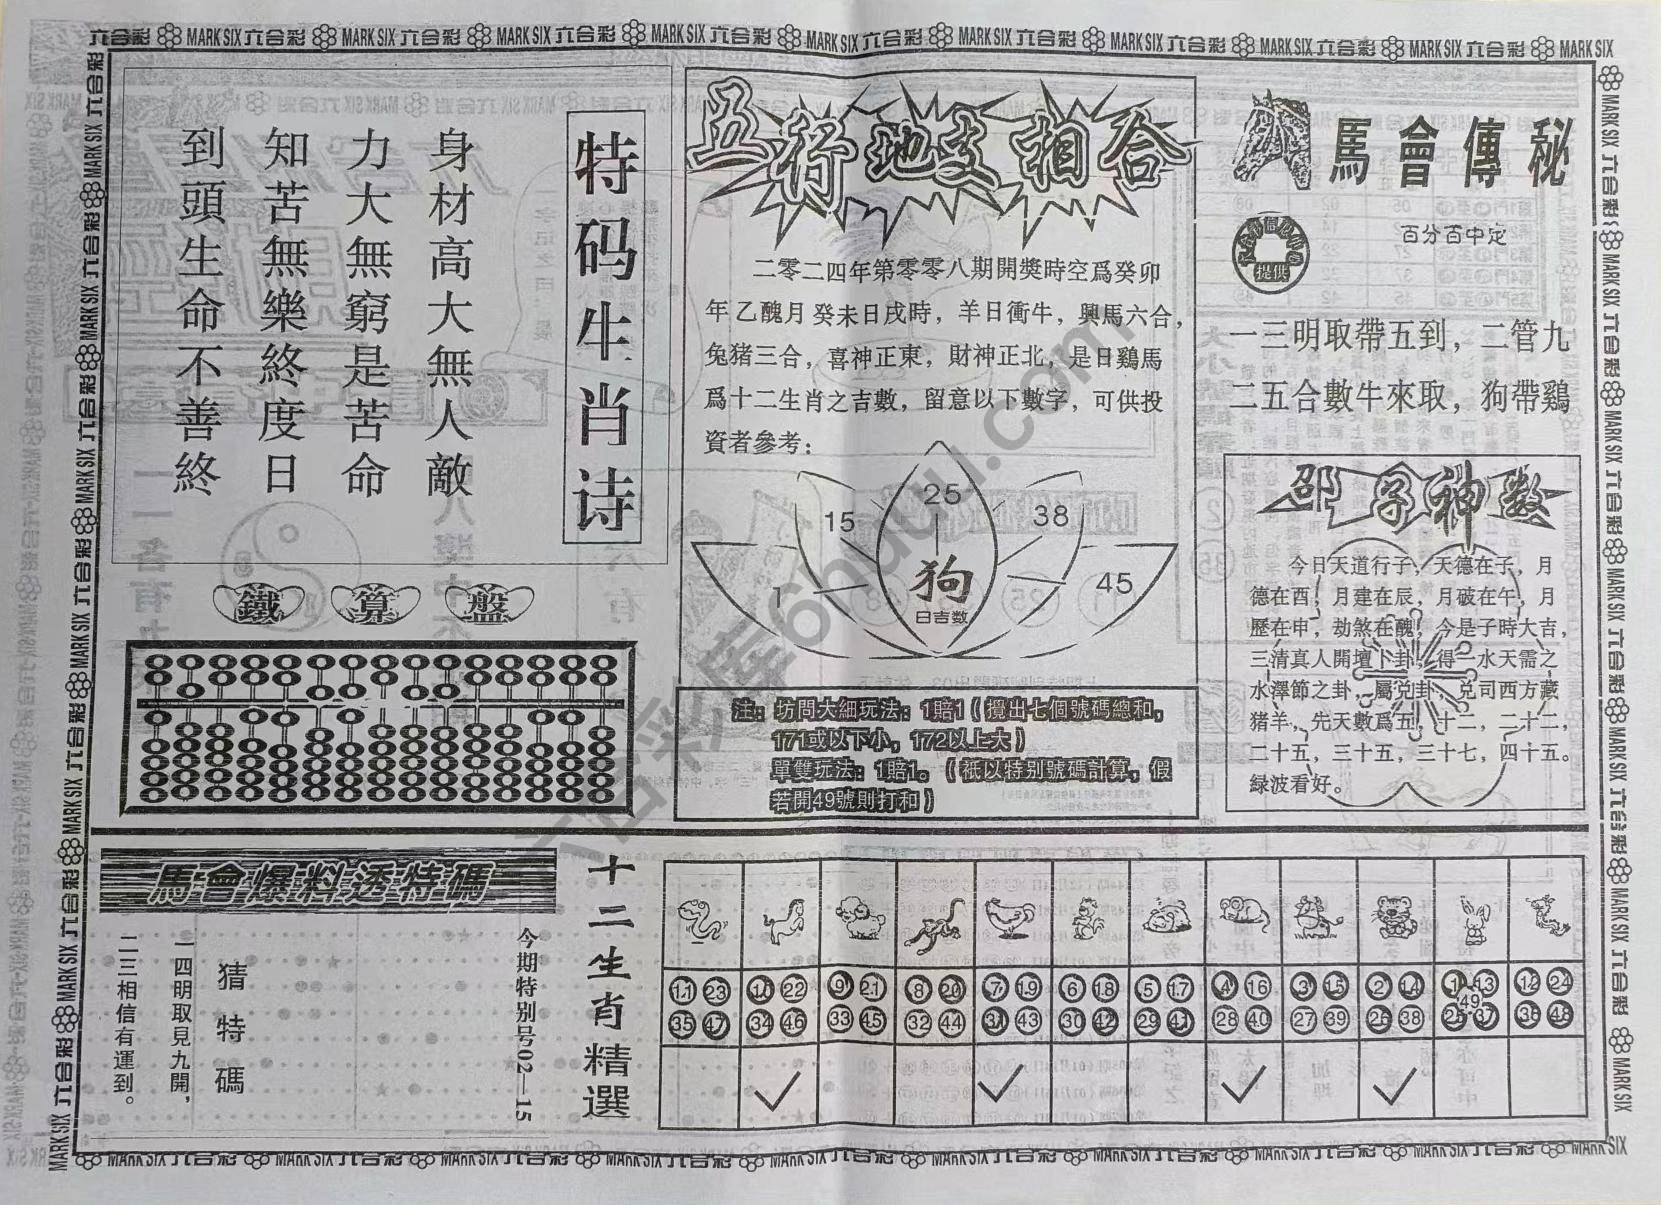 特码生肖诗
身材高大無人敵
力大無窮是苦命
知苦無樂終度日
到頭生命不善終
五行地支相合
二零二四年第零零八期開獎時空爲癸卯
年乙醜月癸未日戌時，羊日衝牛，興馬六合，
兔猪三合，喜神正東，財神正北，是日鷄馬
爲十二生肖之吉數，留意以下數字，可供投
資者參考：
25
15
38
1
狗
45
日吉数
馬會傳秘
百分百中定
提供
一三明取帶五到，二管九
二五合數牛來取，狗帶鷄
邵子神數
今日天道行子，天德在子，月
德在酉，月建在辰，月破在午，月
歷在申，劫煞在醜，今是子時大吉，
三清真人開壇卜卦，得一水天需之
水澤節之卦，屬兑卦，兑司西方藏
猪羊，先天數爲五，十二，二十二，
二十五，三十五，三十七，四十五。
緑波看好。
鐵算盤
注：坊間大細玩法：1賠1（攪出七個號碼總和，
171或以下小，172以上大）
單雙玩法：1賠1。（祇以特别號碼計算，假
若開49號則打和）
馬會爆料透特碼
今期特别号02—15
猜特碼
一四明取見九開，
二三相信有運到。
十二生肖精選
11 23 10 22 9 21 8 20 7 19 6 18 5 17 4 16 3 15 2 14 1 13 12 24
49
35 47 34 46 33 45 32 44 31 43 30 42 29 41 28 40 27 39 26 38 25 37 36 48
六合彩 MARK SIX
六合彩库6hduu.com